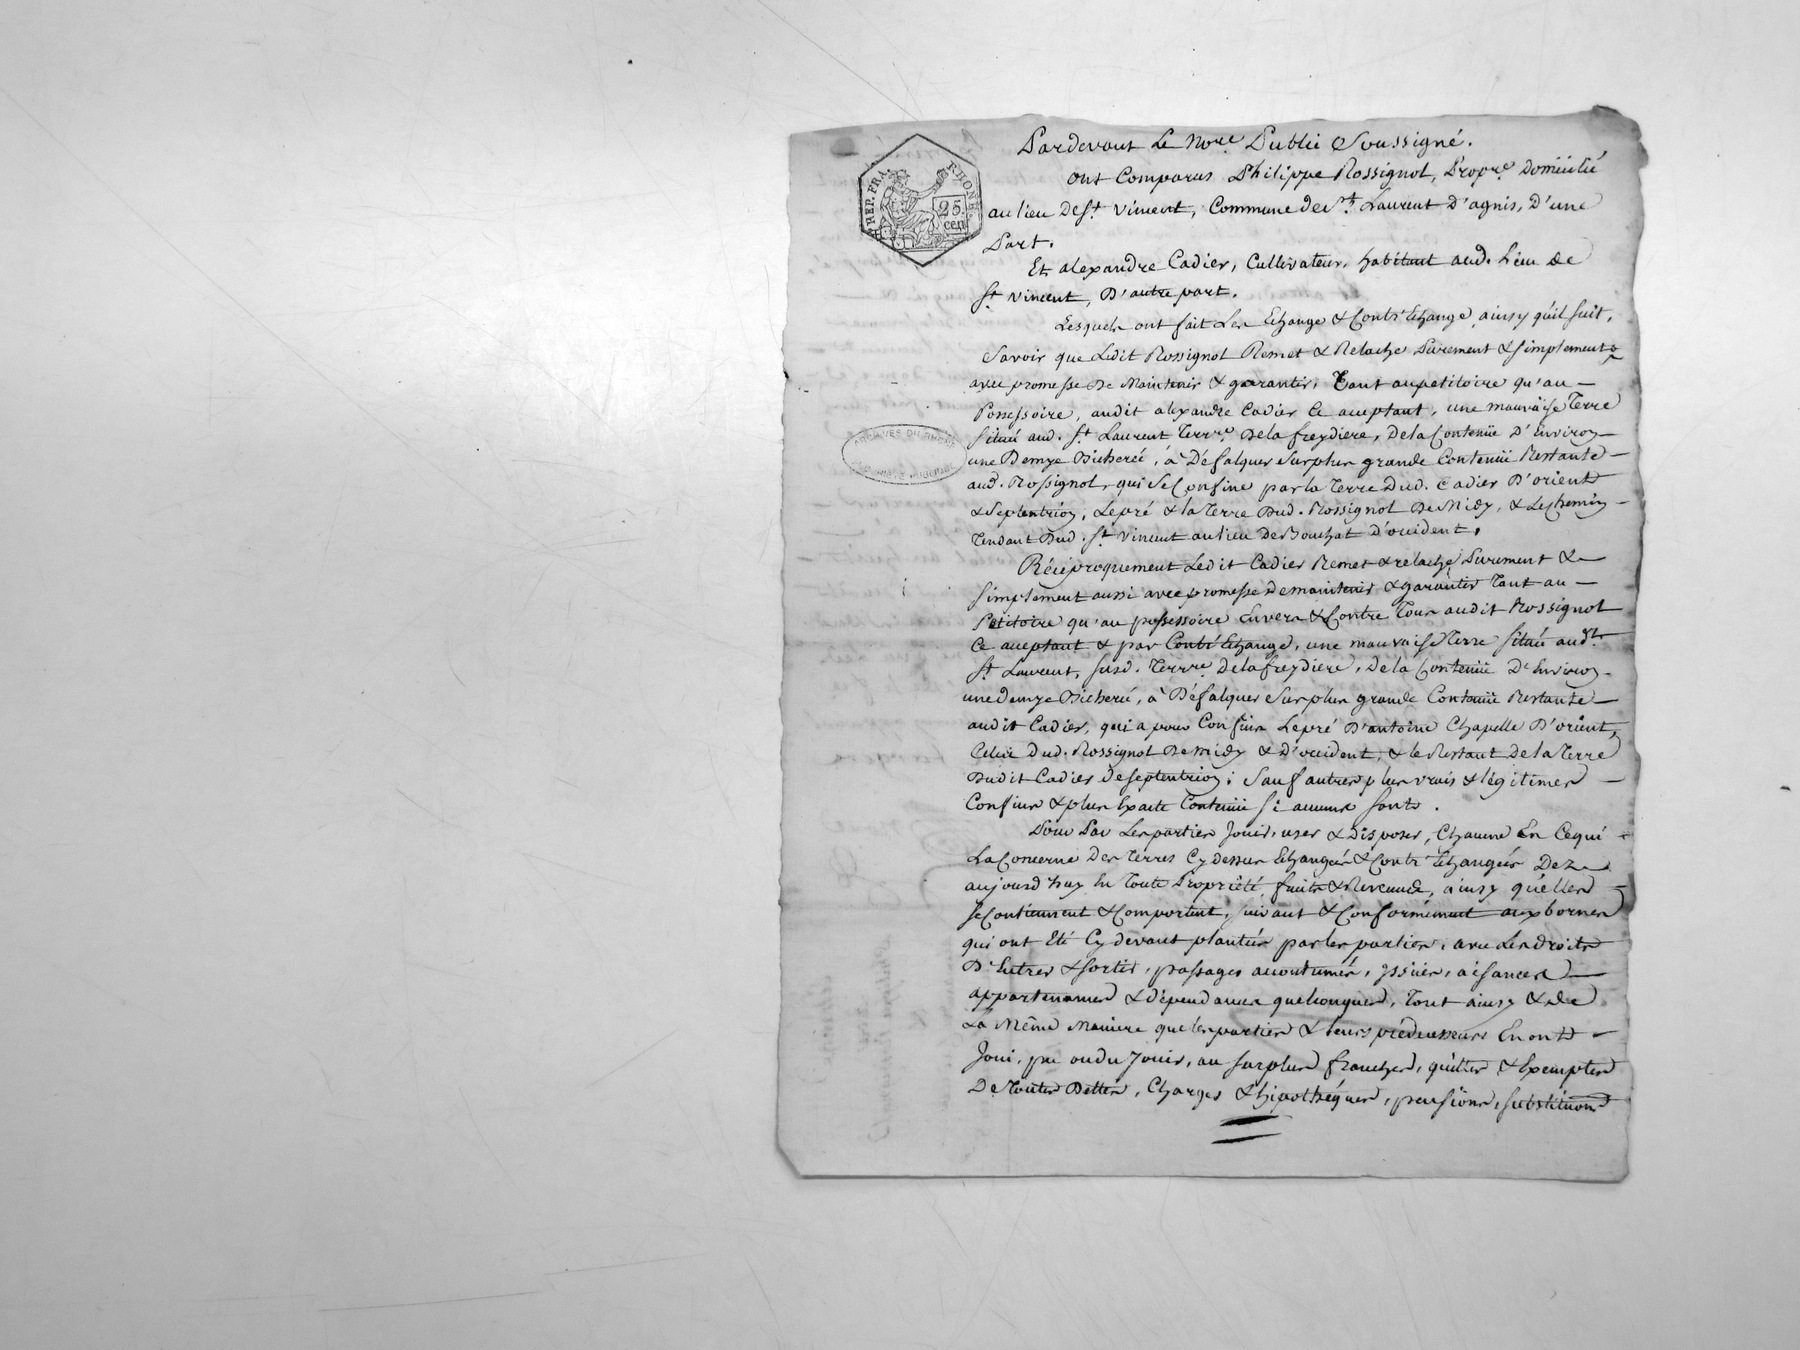 REP. FRA. RHONE.
25
cen
ARCHIVES DU RHONE
Pardevant Le Nore. Public Soussigné.
ont Comparus Philippe Rossignol, Propre. Domicilié
au lieu De St. Vincent, Commune de St. Laurent D'agnis, D'une
Part.
Et alexandre Cadier, Cultivateur, habitant aud. Lieu de
St. Vincent, D'autre part.
Lesquels ont fait Les Echange & Contr'Echange, ainsy qu'il suit,
Savoir que Ledit Rossignol Remet & Relache Purement & simplement
avec promesse De Maintenir & garantir, Tant au petitoire qu'au
Possessoire, audit alexandre Cadier Ce aceptant, une mauvaise Terre
située aud. St. Laurent Terrre. De la freydiere, De la Contenüe D'Environ
une Demye Bicherée, à Défalquer Sur plus grande Contenüe Restante
aud. Rossignol, qui Se Confine par la Terre Dud. Cadier D'orient
& Septentrion, Le pré & la Terre Dud. Rossignol De Midy, & Le chemin
Tendant Dud. St. Vincent au lieu De Bouchat D'occident.
Réciproquement Ledit Cadier Remet & relache Purement &
simplement aussi avec promesse De maintenir & garantir Tant au
Petitoire qu'au possessoire Envers & Contre Tous audit Rossignol
Ce aceptant & par Contr'Echange, une mauvaise Terre située audt.
St. Laurent, susd. Terrre. De la freydiere, De la Contenüe D'Environ
une demye Bicherée, à Défalquer Sur plus grande Contenüe Restante
audit Cadier, qui a pour Confins Le pré D'antoine Chapelle D'orient,
Celui Dud. Rossignol De midy & D'occident, & le Restant De la Terre
Dudit Cadier de septentrion; Sauf autres plus vrais & légitimes
Confins & plus Exacte Contenüe si aucuns sont.
Pour Par Les parties Jouir, user & Disposer, Chacune En Ce qui
La Concerne Des Terres Cy dessus Echangées & Contr'Echangées Dez
aujourd'huy En Toute Propriété, fruits & Revenus, ainsy qu'elles
se Contiennent & Comportent, suivant & Conformément aux bornes
qui ont Eté Cy devant plantées par les parties, avec Les droits
D'Entrer & sortir, passages accoutumés, Issües, aisances
appartenances & dépendances quelconques, Tout ainsy & de
La Même Maniere que les parties & leurs prédécesseurs En ont
Joui, pu ou du Jouir, au surplus franches, quittes & Exemptes
De Toutes Dettes, Charges & hipothéques, pensions, substitutions